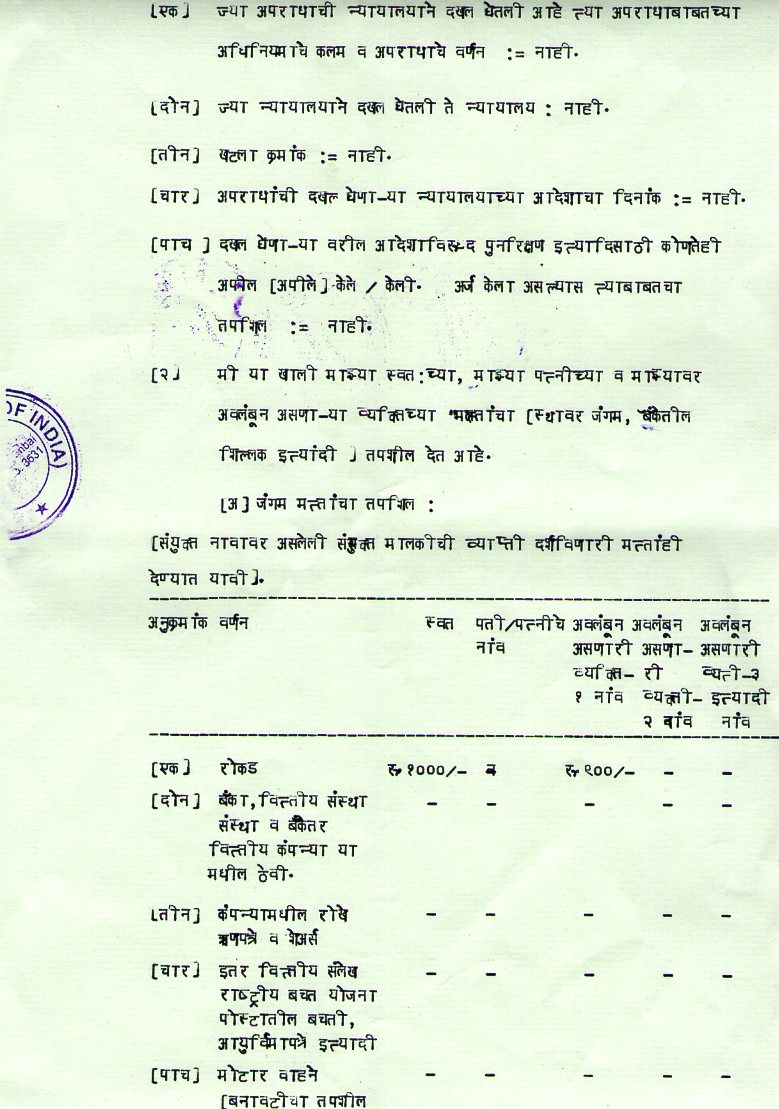 [एक] ज्या अपराधाची न्यायालयाने दखल घेतली आहे त्या अपराधाबाबतच्या
अधिनियमाचे कलम व अपराधाचे वर्णन := नाही.
[दोन] ज्या न्यायालयाने दखल घेतली ते न्यायालय : नाही.
[तीन] खटला क्रमांक := नाही.
[चार] अपराधांची दखल घेणा-या न्यायालयाच्या आदेशाचा दिनांक := नाही.
[पाच ] दखल घेणा-या वरील आदेशाविरूद पुनरिक्षण इत्यादिसाठी कोणतेही
अपील [अपीले] केले / केली. अर्ज केला असल्यास त्याबाबतचा
तपशिल := नाही.
[२] मी या खाली माझ्या स्वत:च्या, माझ्या पत्नीच्या व माझ्यावर
अवलंबून असणा-या व्यक्तिच्या मत्तांचा [स्थावर जंगम, बँकेतील
शिल्लक इत्यांदी ] तपशील देत आहे.
[अ] जंगम मत्तांचा तपशिल :
[संयुक्त नावावर असलेली संयुक्त मालकीची व्याप्ती दर्शविणारी मत्तांही
देण्यात यावी].
अनुक्रमांक वर्णन स्वत पती/पत्नीचे अवलंबून अवलंबून अवलंबून
नांव असणारी असणा- असणारी
व्यक्ति- री व्यती-३
१ नांव व्यक्ती- इत्यादी
२ नांव नांव
[एक] रोकड रु १०००/- - रु ९००/- - -
[दोन] बँका, वित्तीय संस्था - - - - -
संस्था व बँकेतर
वित्तीय कंपन्या या
मधील ठेवी.
[तीन] कंपन्यामधील रोखे - - - - -
ऋणपत्रे व शेअर्स
[चार] इतर वित्तीय संलेख - - - - -
राष्ट्रीय बचत योजना
पोस्टातील बचती,
आयुर्विमापत्रे इत्यादी
[पाच] मोटार वाहने - - - - -
[बनावटीचा तपशील
OF INDIA)
3631